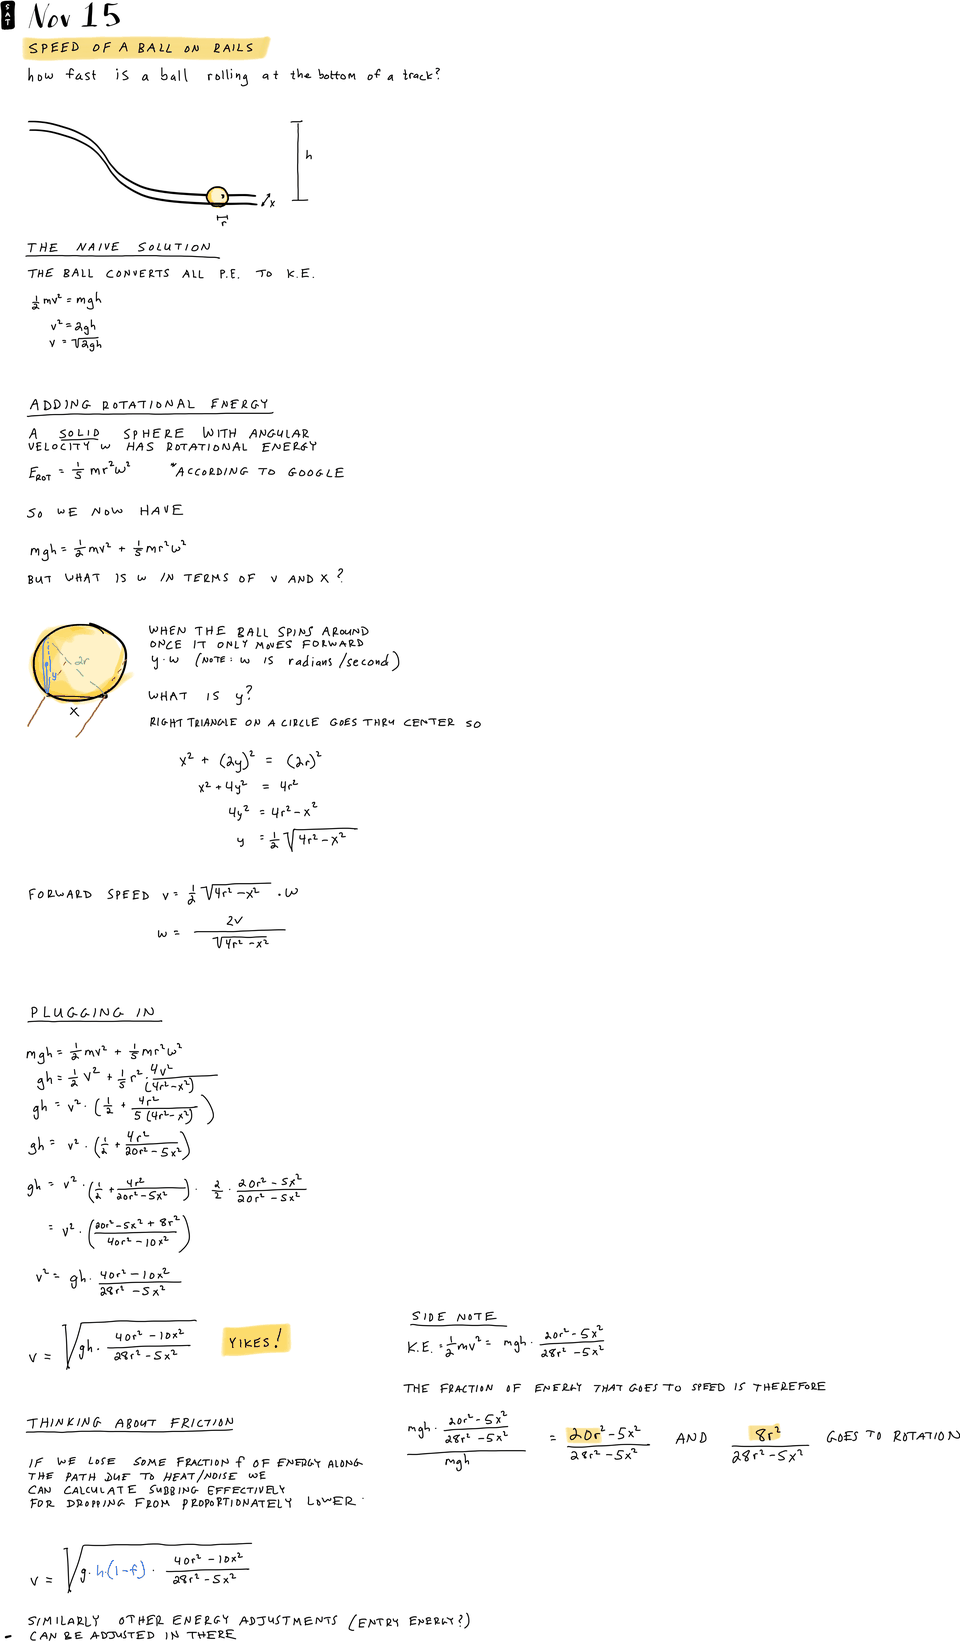 SAT
Nov 15
SPEED OF A BALL ON RAILS
how fast is a ball rolling at the bottom of a track?
h
x
r
THE NAIVE SOLUTION
THE BALL CONVERTS ALL P.E. TO K.E.
½mv² = mgh
v² = 2gh
v = √2gh
ADDING ROTATIONAL ENERGY
A SOLID SPHERE WITH ANGULAR
VELOCITY w HAS ROTATIONAL ENERGY
E_ROT = 1/5 mr²w² *ACCORDING TO GOOGLE
SO WE NOW HAVE
mgh = ½mv² + 1/5 mr²w²
BUT WHAT IS w IN TERMS OF v AND x?
2r
y
x
WHEN THE BALL SPINS AROUND
ONCE IT ONLY MOVES FORWARD
y·w (NOTE: w IS radians/second)
WHAT IS y?
RIGHT TRIANGLE ON A CIRCLE GOES THRU CENTER SO
x² + (2y)² = (2r)²
x² + 4y² = 4r²
4y² = 4r² - x²
y = ½√(4r² - x²)
FORWARD SPEED v = ½√(4r² - x²) · w
w = 2v / √(4r² - x²)
PLUGGING IN
mgh = ½mv² + 1/5 mr²w²
gh = ½v² + 1/5 r² · 4v²/(4r² - x²)
gh = v² · (½ + 4r²/5(4r² - x²))
gh = v² · (½ + 4r²/(20r² - 5x²))
gh = v² · (½ + 4r²/(20r² - 5x²)) · 2/2 · (20r² - 5x²)/(20r² - 5x²)
= v² · ((20r² - 5x² + 8r²)/(40r² - 10x²))
v² = gh · (40r² - 10x²)/(28r² - 5x²)
v = √(gh · (40r² - 10x²)/(28r² - 5x²)) YIKES!
SIDE NOTE
K.E. = ½mv² = mgh · (20r² - 5x²)/(28r² - 5x²)
THE FRACTION OF ENERGY THAT GOES TO SPEED IS THEREFORE
(mgh · (20r² - 5x²)/(28r² - 5x²))/mgh = (20r² - 5x²)/(28r² - 5x²) AND 8r²/(28r² - 5x²) GOES TO ROTATION
THINKING ABOUT FRICTION
IF WE LOSE SOME FRACTION f OF ENERGY ALONG
THE PATH DUE TO HEAT/NOISE WE
CAN CALCULATE SUBBING EFFECTIVELY
FOR DROPPING FROM PROPORTIONATELY LOWER.
v = √(g·h·(1-f) · (40r² - 10x²)/(28r² - 5x²))
SIMILARLY OTHER ENERGY ADJUSTMENTS (ENTRY ENERGY?)
- CAN BE ADJUSTED IN THERE